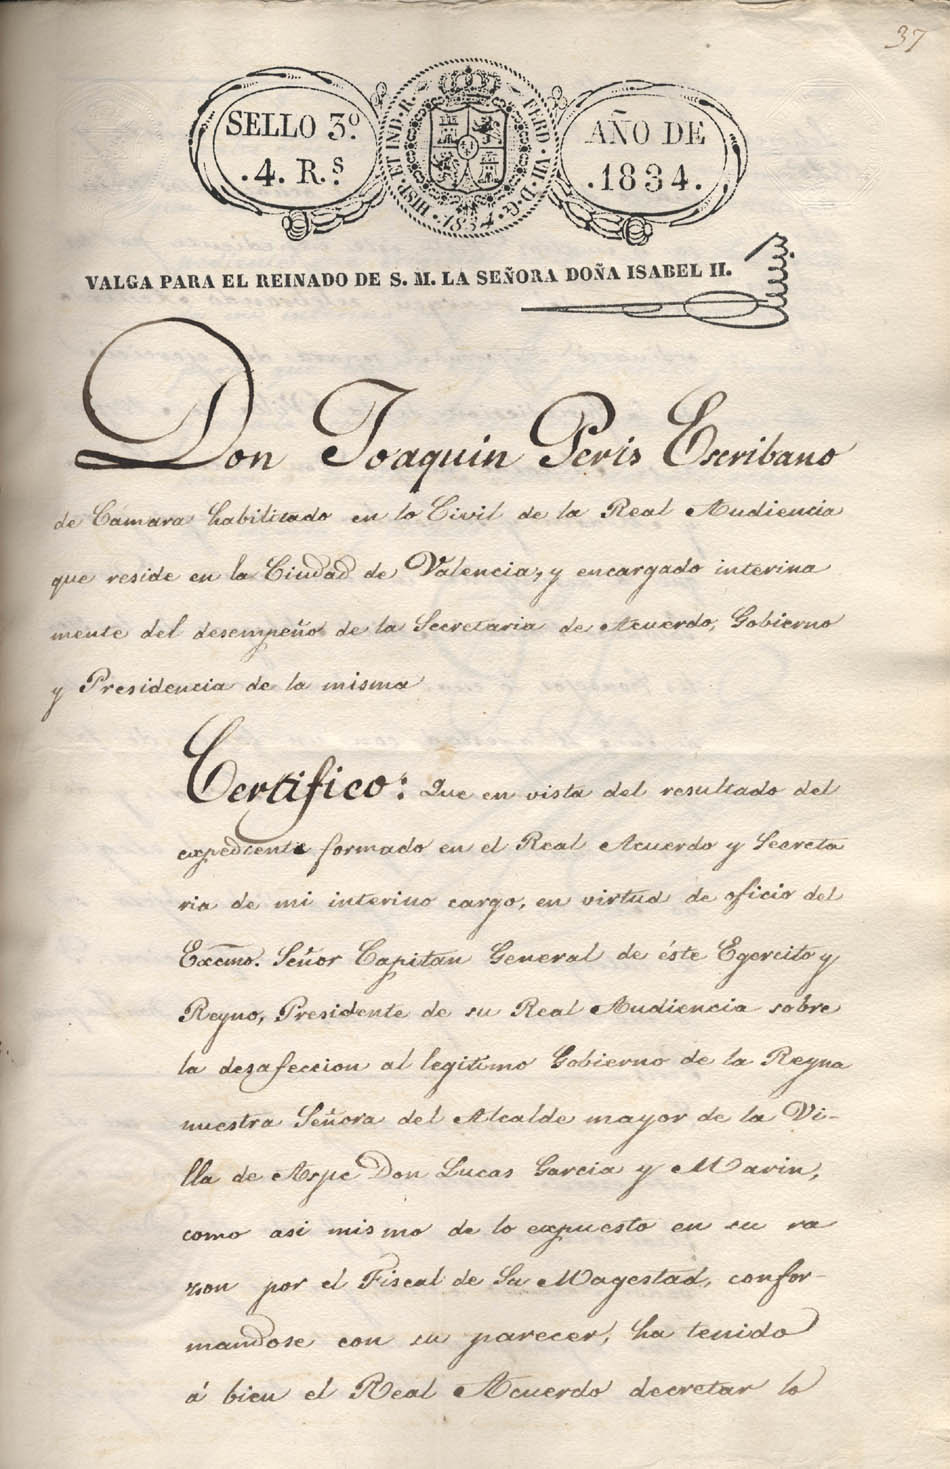 37
SELLO 3º
.4. R.s
HISP. ET IND. R.
FERD. VII. D. G.
.1834.
AÑO DE
.1834.
VALGA PARA EL REINADO DE S. M. LA SEÑORA DOÑA ISABEL II.
Don Joaquin Peris Escribano
de Cámara habilitado en lo Civil de la Real Audiencia
que reside en la Ciudad de Valencia, y encargado interina
mente del desempeño de la Secretaria de Acuerdo, Gobierno
y Presidencia de la misma
Certifico: Que en vista del resultado del
expediente formado en el Real Acuerdo y Secreta
ria de mi interino cargo, en virtud de oficio del
Excmo. Señor Capitan General de éste Egercito y
Reyno, Presidente de su Real Audiencia sobre
la desafeccion al legitimo Gobierno de la Reyna
nuestra Señora del Alcalde mayor de la Vi-
lla de Aspe Don Lucas Garcia y Marin,
como asi mismo de lo expuesto en su ra
zon por el Fiscal de Su Magestad, confor-
mandose con su parecer, ha tenido
á bien el Real Acuerdo decretar lo